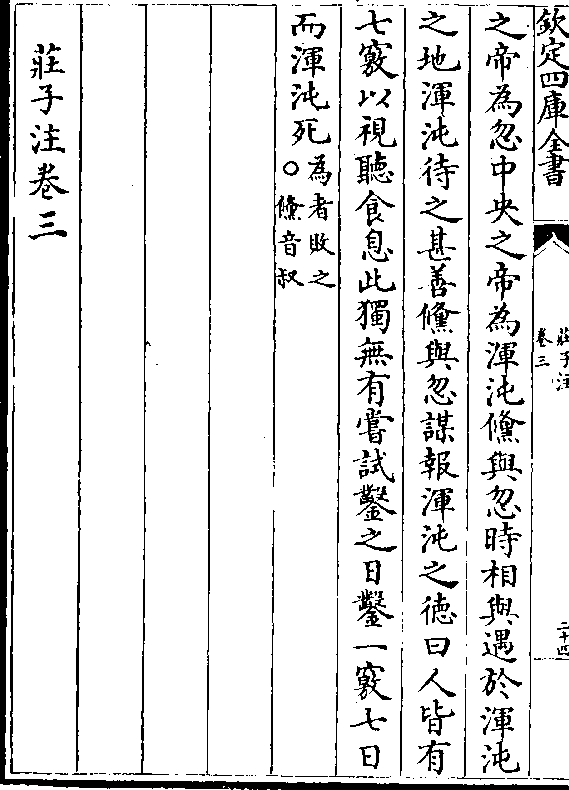 欽定四庫全書
莊子注
卷三
二十四
之帝為忽中央之帝為渾沌儵與忽時相與遇於渾沌
之地渾沌待之甚善儵與忽謀報渾沌之德曰人皆有
七竅以視聽食息此獨無有嘗試鑿之日鑿一竅七日
而渾沌死
為者敗之
○儵音叔
莊子注卷三